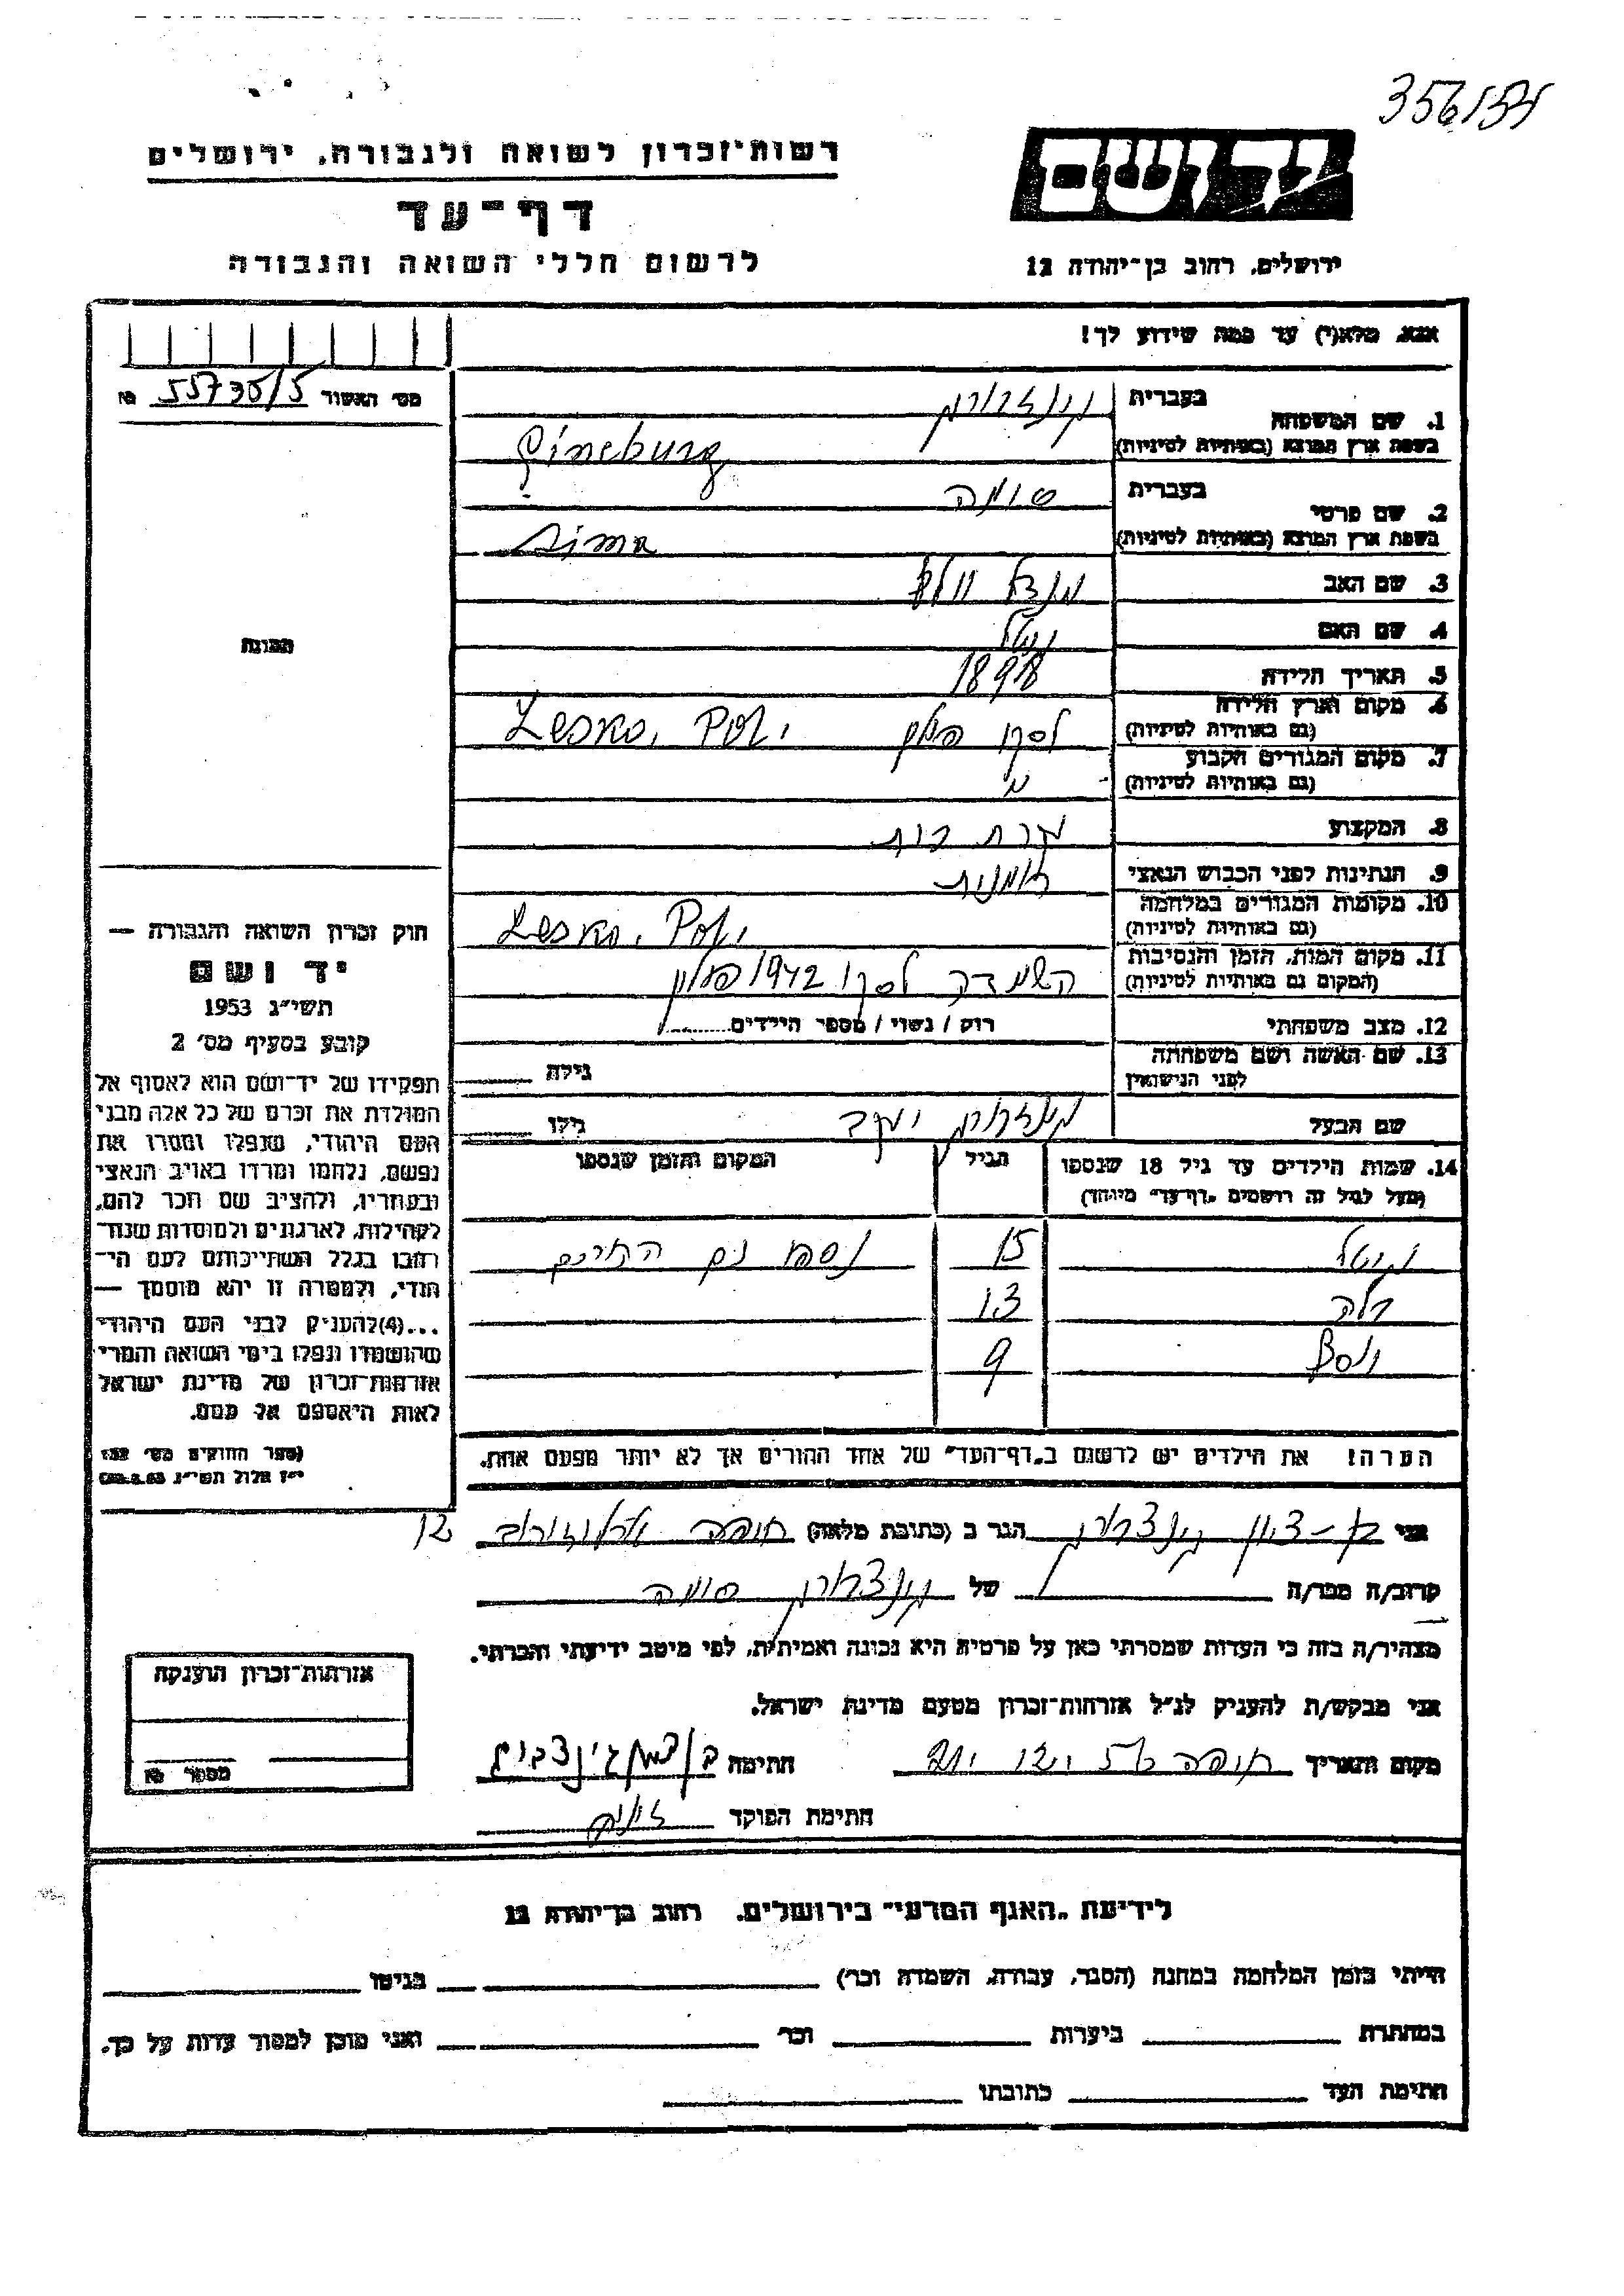 356/54
רשות־זכרון לשואה ולגבורה, ירושלים
דף־עד
לרשום חללי השואה והגבורה
יד ושם
ירושלים, רחוב בן־יהודה 12
אנא, מלא(י) עד כמה שידוע לך!
מס׳ האשור 55736/5 №
בעברית
1. שם המשפחה
בשפת ארץ המוצא (באותיות לטיניות)
גינצבורג
Gineburg
בעברית
2. שם פרטי
בשפת ארץ המוצא (באותיות לטיניות)
סימה
Sima
3. שם האב
מנדל וולף
4. שם האם
5. תאריך הלידה 1898
6. מקום וארץ הלידה
(גם באותיות לטיניות)
לסקו פולין Lesko, Pol.
7. מקום המגורים הקבוע
(גם באותיות לטיניות)
8. המקצוע
עקרת בית
9. הנתינות לפני הכבוש הנאצי
10. מקומות המגורים במלחמה
(גם באותיות לטיניות)
Lesko, Pol.
11. מקום המות, הזמן והנסיבות
(המקום גם באותיות לטיניות)
השמדה לסקו 1942 פולין
12. מצב משפחתי
רוק / נשוי / מספר הילדים
13. שם האשה ושם משפחתה
לפני הנישואין
גילה
שם הבעל
גינצבורג יעקב
גילו
14. שמות הילדים עד גיל 18 שנספו
(מעל לגיל זה רושמים „דף־עד״ מיוחד)
הגיל
המקום והזמן שנספו
גיטל 15 נספו עם ההורים
13
יוסף 9
הערה! את הילדים יש לרשום ב„דף־העד״ של אחד ההורים אך לא יותר מפעם אחת.
תמונה
חוק זכרון השואה והגבורה —
יד ושם
תשי״ג 1953
קובע בסעיף מס׳ 2
תפקידו של יד־ושם הוא לאסוף אל
המולדת את זכרם של כל אלה מבני
העם היהודי, שנפלו ומסרו את
נפשם, נלחמו ומרדו באויב הנאצי
ובעוזריו, ולהציב שם וזכר להם,
לקהילות, לארגונים ולמוסדות שנח־
רבו בגלל השתייכותם לעם הי־
הודי, ולמטרה זו יהא מוסמך —
...(4)להעניק לבני העם היהודי
שהושמדו ונפלו בימי השואה והמרי
אזרחות־זכרון של מדינת ישראל
לאות היאספם אל עמם.
(ספר החוקים מס׳ 132
י״ז אלול תשי״ג 28.8.53)
אני בן-ציון גינצבורג הגר ב (כתובת מלאה) חיפה ארלוזורוב 12
קרוב/ה מכר/ה של גינצבורג סימה
מצהיר/ה בזה כי העדות שמסרתי כאן על פרטיה היא נכונה ואמיתית, לפי מיטב ידיעתי והכרתי.
אני מבקש/ת להעניק לנ״ל אזרחות־זכרון מטעם מדינת ישראל.
מקום ותאריך חיפה חתימה בן ציון גינצבורג
חתימת הפוקד
אזרחות־זכרון הוענקה
מספר №
לידיעת „האגף המדעי״ בירושלים, רחוב בן־יהודה 12
הייתי בזמן המלחמה במחנה (הסגר, עבודה, השמדה וכו׳) בגיטו
במחתרת ביערות וכו׳ ואני מוכן למסור עדות על כך.
חתימת העד כתובתו